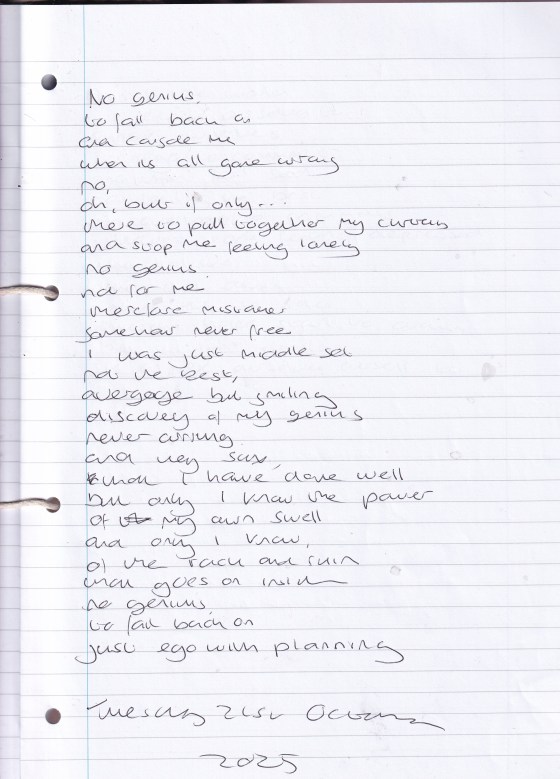 No genius,
to fall back on
and console me
when its all gone wrong
no,
oh, but if only...
there to pull together my curtains
and stop me feeling lonely
no genius
not for me
therefore mistakes
somehow never free
I was just middle set
not the best,
average but smiling
discovery of my genius
never arriving
and they say,
that I have done well
but only I know the power
of my own swell
and only I know,
of the rack and ruin
that goes on inside
no genius,
to fall back on
just ego with planning
Tuesday 21st October
2025